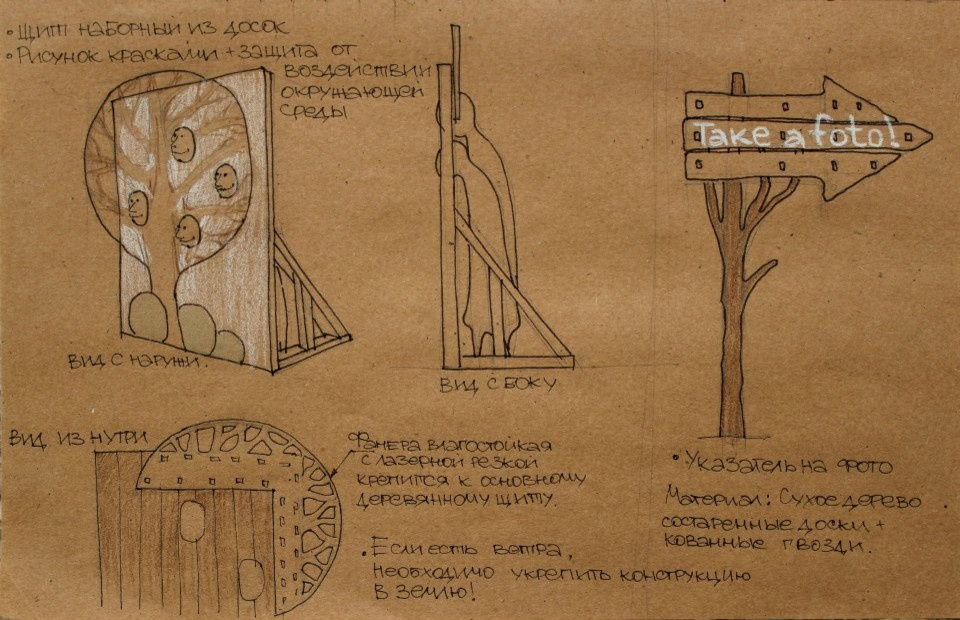 • Щит наборный из досок
• Рисунок красками + защита от
воздействий
окружающей
среды
Вид с наружи.
Вид с боку
Take a foto!
Вид из нутри
Фанера влагостойкая
с лазерной резкой
крепится к основному
деревянному щиту.
• Если есть ветра,
необходимо укрепить конструкцию
в землю!
• Указатель на фото
Материал: Сухое дерево
состаренные доски +
кованные гвозди.